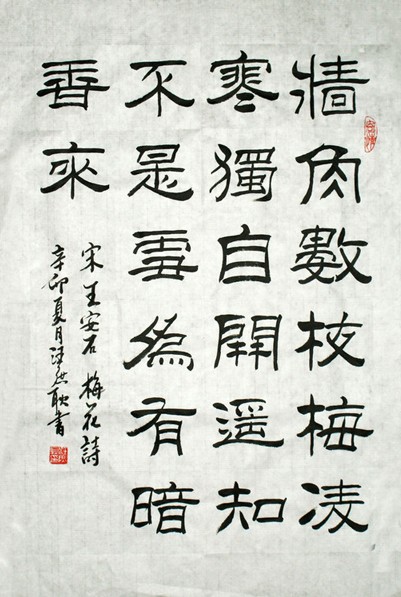 牆角數枝梅凌
寒獨自開遥知
不是雪為有暗
香來
宋王安石 梅花詩
辛卯夏月汪耿書